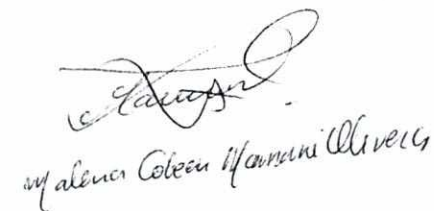 Malena Coleen Mamani Olivera